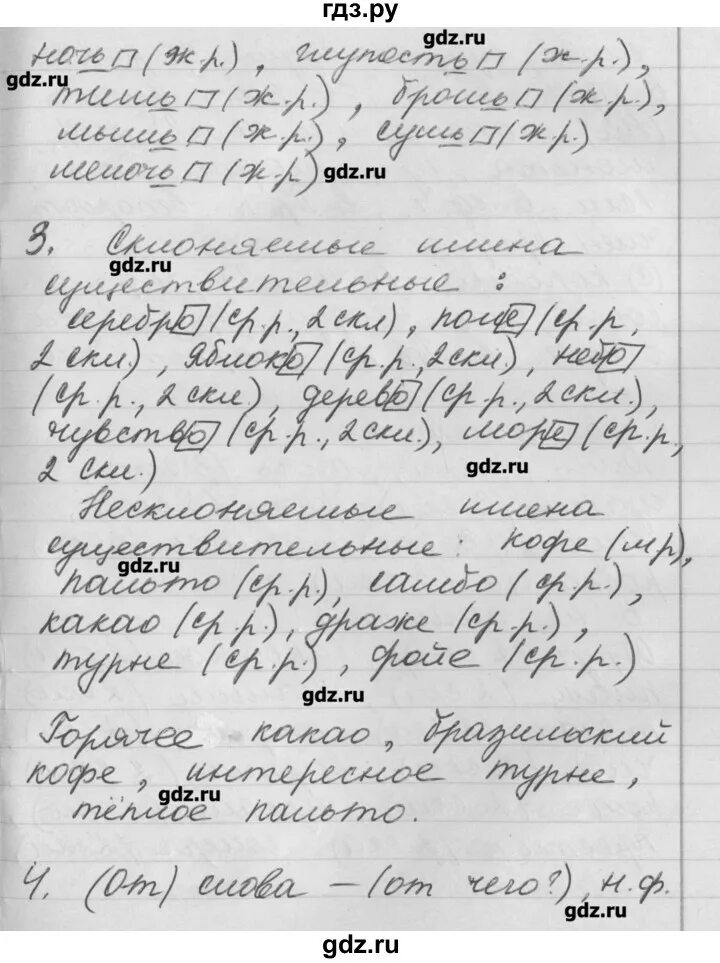 гдз.ру
gdz.ru
ночь▭ (ж.р.), глупость▭ (ж.р.),
gdz.ru
тишь▭ (ж.р.), брошь▭ (ж.р.),
gdz.ru
мышь▭ (ж.р.), сушь▭ (ж.р.)
мелочь▭ (ж.р.)
gdz.ru
3. Склоняемые имена
gdz.ru
существительные:
серебро (ср.р., 2 скл), поле (ср.р,
gdz.ru
2 скл.), яблоко (ср.р., 2 скл), небо
(ср.р., 2 скл.), дерево (ср.р., 2 скл.),
чувство (ср.р., 2 скл), море (ср.р,
2 скл.)
gdz.ru
Несклоняемые имена
существительные: кофе (м.р),
gdz.ru
пальто (ср.р.), самбо (ср.р.),
какао (ср.р.), драже (ср.р.),
турне (ср.р.), фойе (ср.р.)
gdz.ru
Горячее какао, бразильский
кофе, интересное турне,
gdz.ru
тёплое пальто.
4. (От) слова – (от чего?), н.ф.
gdz.ru
gdz.ru